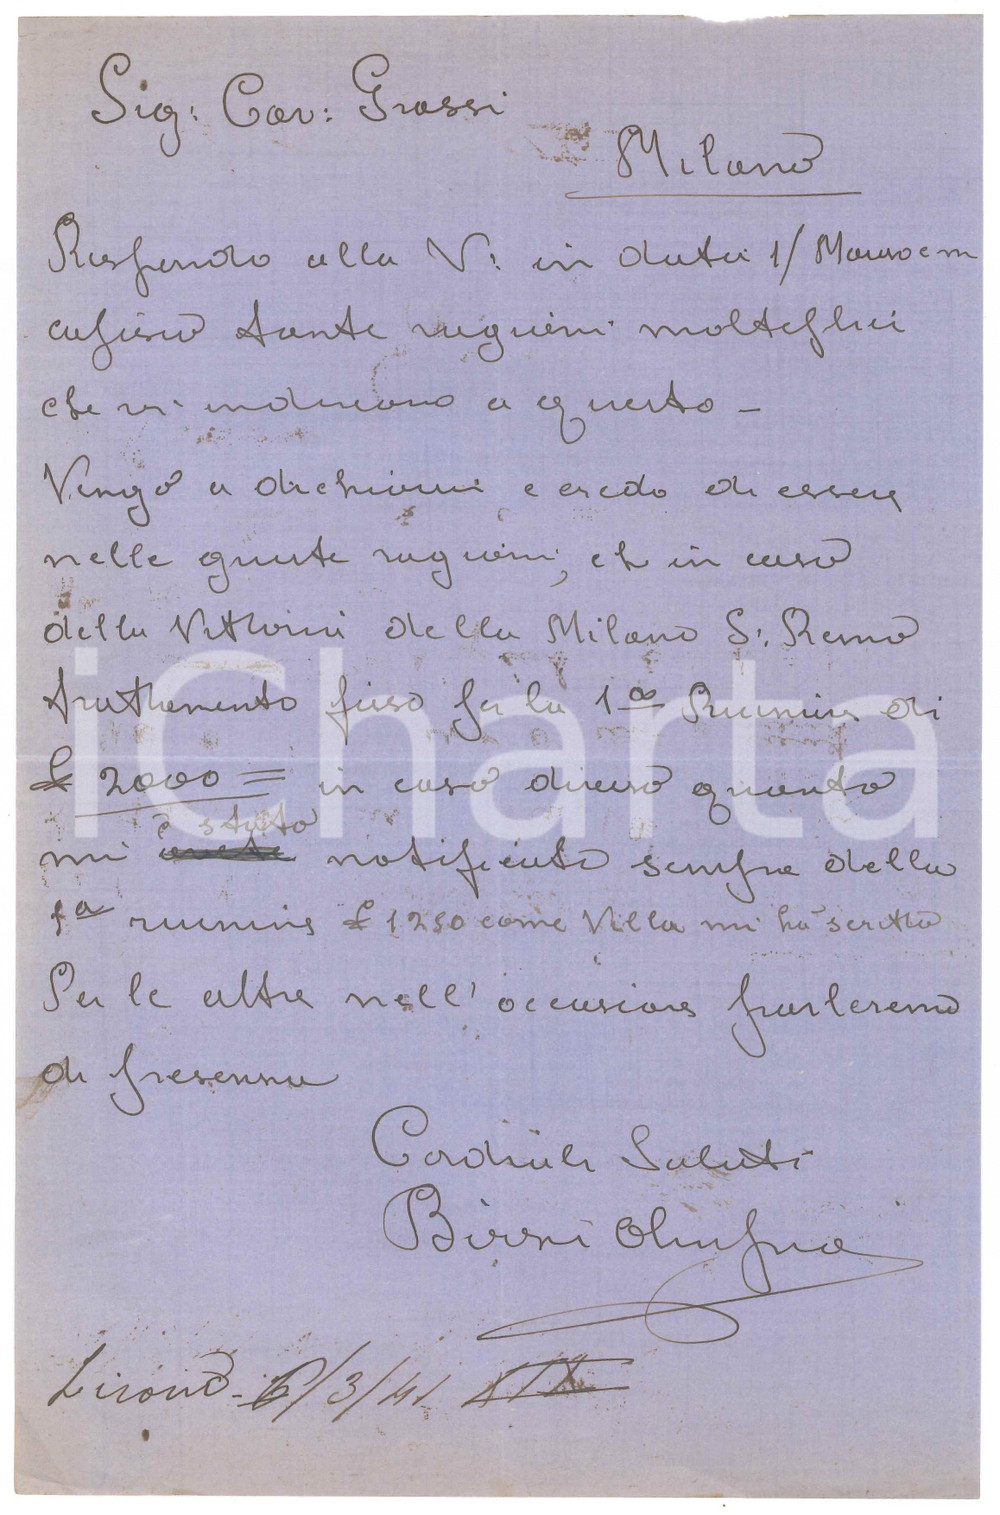 Sig: Cav: Grassi
Milano
Rispondo alla V: in data 1/ Marzo c m
capisco tante ragioni molteplici
che vi inducono a questo -
Vengo a dichiarvi e credo di essere
nelle giuste ragioni, ch in caso
della Vittoria della Milano S: Remo
trattamento fisso per la 1a Riunione di
£ 2000 = in caso diverso quanto
mi è stato notificato sempre della
1a riunione £ 1250 come Villa mi ha scritto
Per le altre nell' occasione parleremo
di presenza
Cordiali Saluti
Bizzi Olimpio
6/3/41 XIX
iCharta